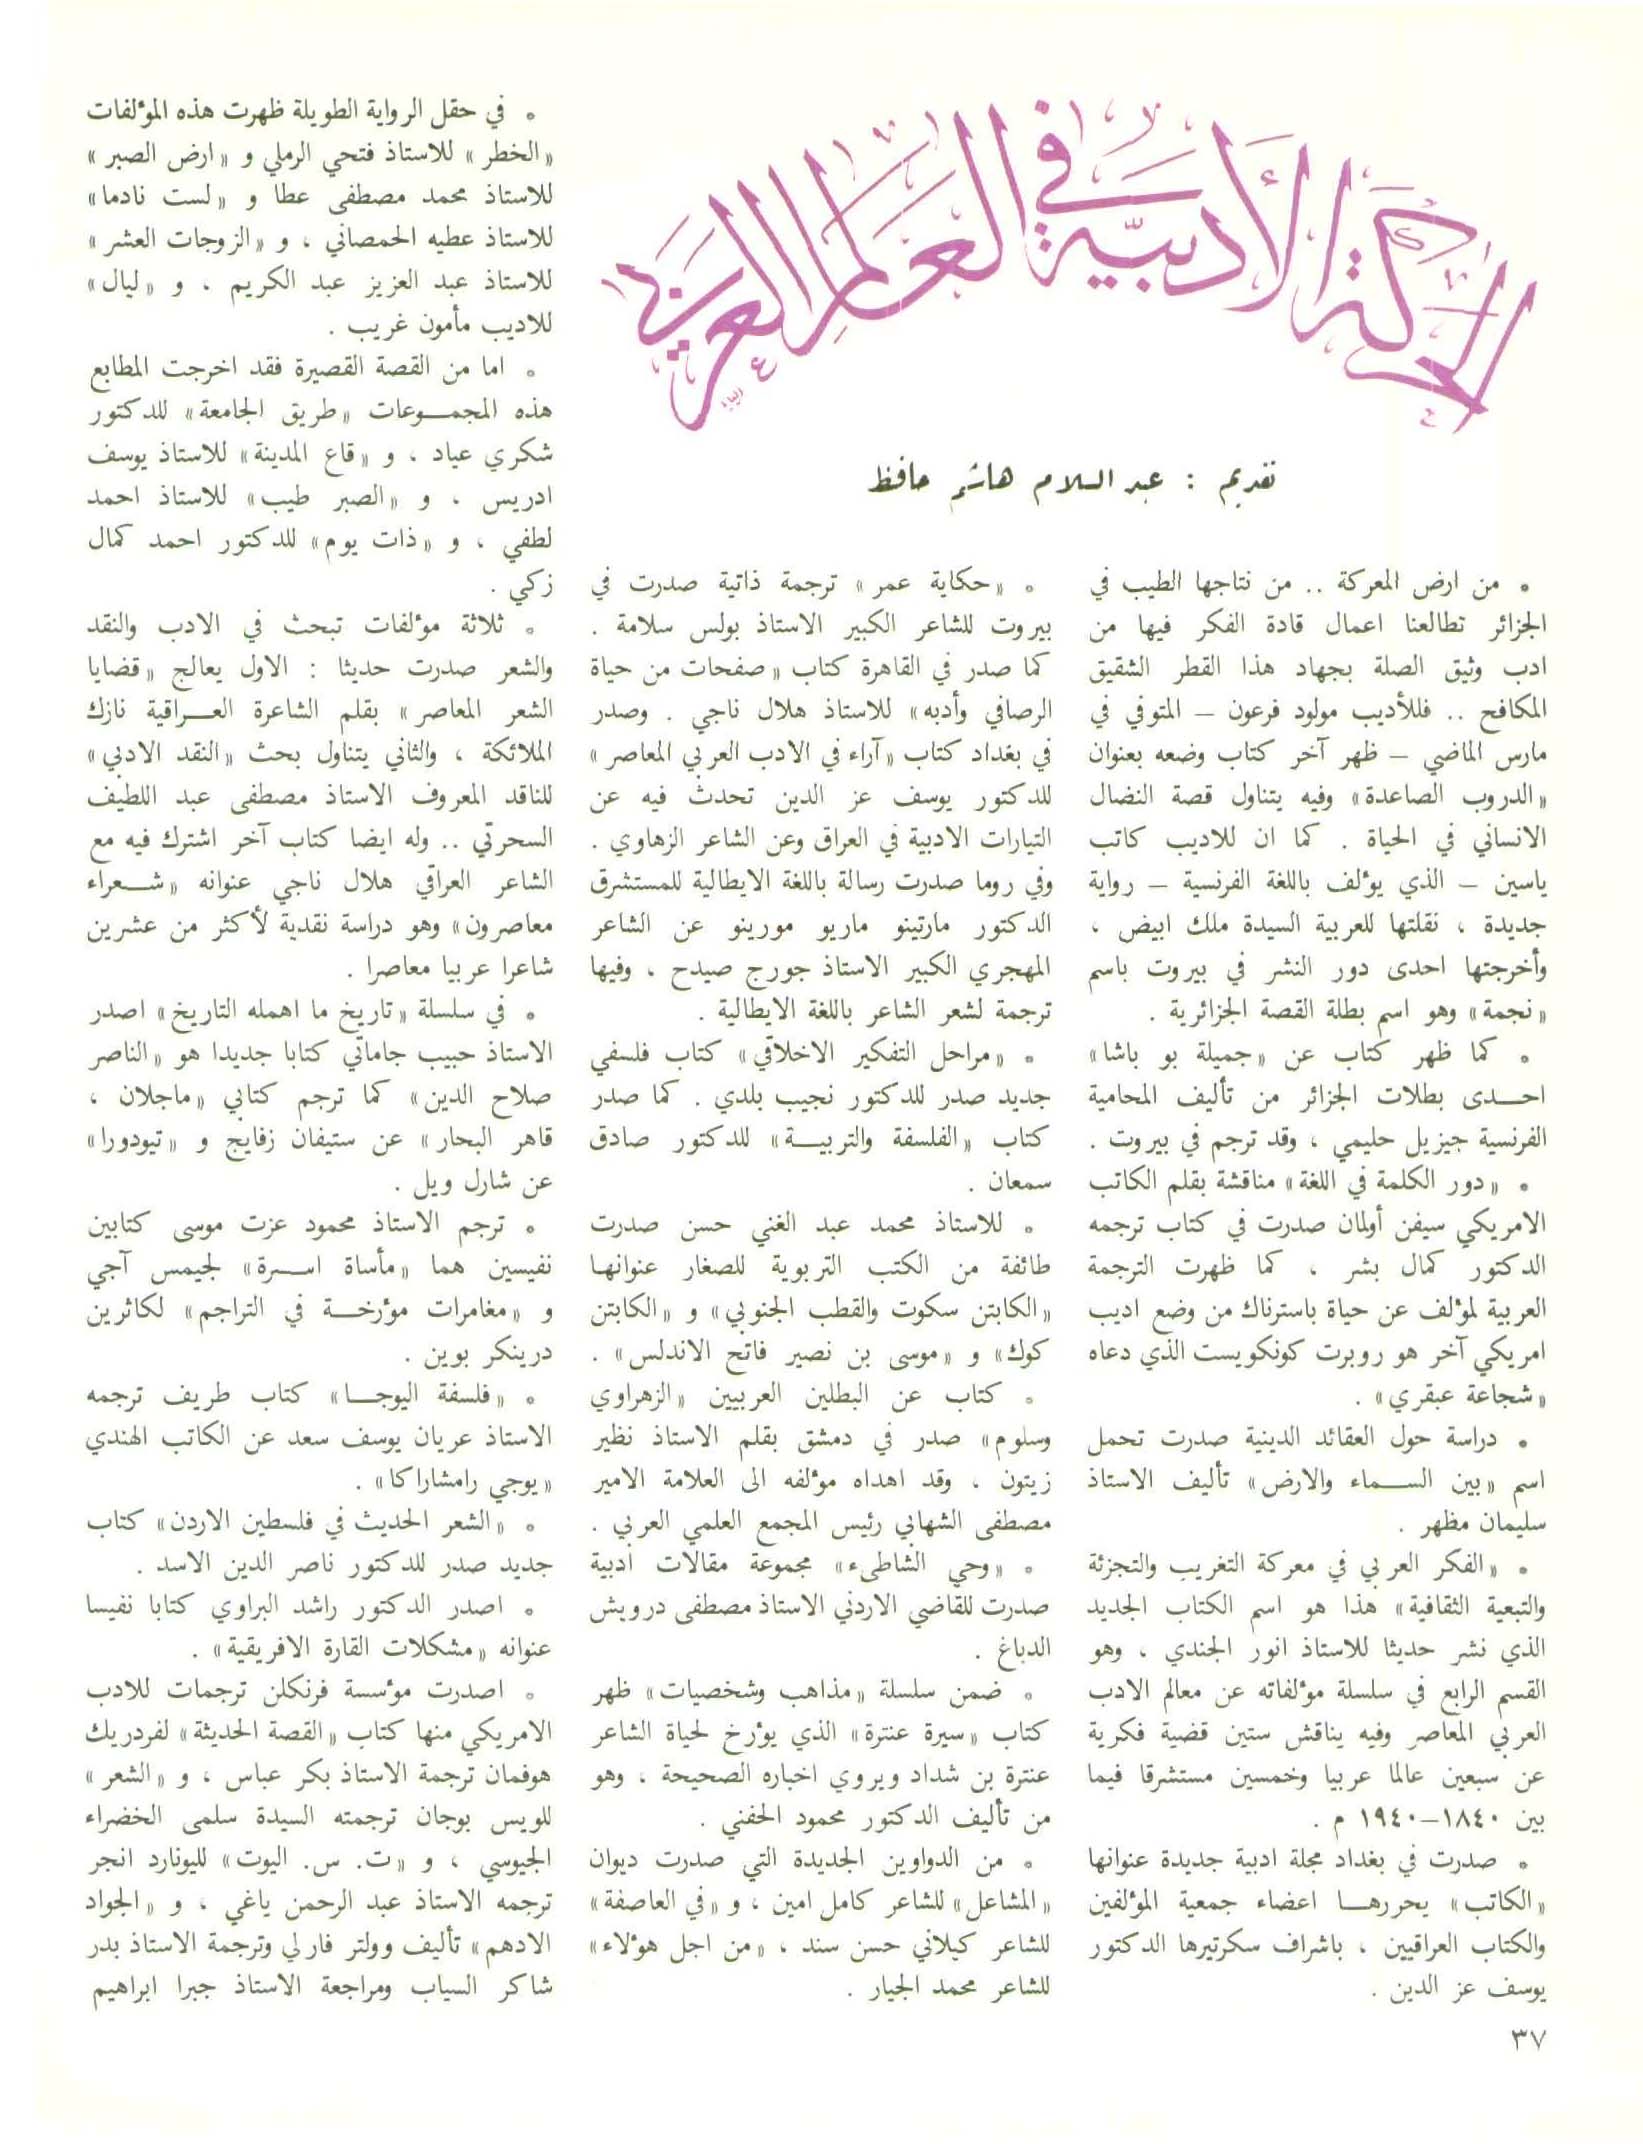 الحركة الأدبية في العالم العربي
تقديم : عبد السلام هاشم حافظ
• من ارض المعركة .. من نتاجها الطيب في
الجزائر تطالعنا اعمال قادة الفكر فيها من
ادب وثيق الصلة بجهاد هذا القطر الشقيق
المكافح .. فللأديب مولود فرعون – المتوفي في
مارس الماضي – ظهر آخر كتاب وضعه بعنوان
«الدروب الصاعدة» وفيه يتناول قصة النضال
الانساني في الحياة . كما ان للاديب كاتب
ياسين – الذي يؤلف باللغة الفرنسية – رواية
جديدة ، نقلتها للعربية السيدة ملك ابيض ،
وأخرجتها احدى دور النشر في بيروت باسم
«نجمة» وهو اسم بطلة القصة الجزائرية .
• كما ظهر كتاب عن «جميلة بو باشا»
احـــدى بطلات الجزائر من تأليف المحامية
الفرنسية جيزيل حليمي ، وقد ترجم في بيروت .
• «دور الكلمة في اللغة» مناقشة بقلم الكاتب
الامريكي سيفن أولمان صدرت في كتاب ترجمه
الدكتور كمال بشر ، كما ظهرت الترجمة
العربية لمؤلف عن حياة باسترناك من وضع اديب
امريكي آخر هو روبرت كونكويست الذي دعاه
«شجاعة عبقري» .
• دراسة حول العقائد الدينية صدرت تحمل
اسم «بين الســـماء والارض» تأليف الاستاذ
سليمان مظهر .
• «الفكر العربي في معركة التغريب والتجزئة
والتبعية الثقافية» هذا هو اسم الكتاب الجديد
الذي نشر حديثا للاستاذ انور الجندي ، وهو
القسم الرابع في سلسلة مؤلفاته عن معالم الادب
العربي المعاصر وفيه يناقش ستين قضية فكرية
عن سبعين عالما عربيا وخمسين مستشرقا فيما
بين ١٨٤٠–١٩٤٠ م .
• صدرت في بغداد مجلة ادبية جديدة عنوانها
«الكاتب» يحررهــا اعضاء جمعية المؤلفين
والكتاب العراقيين ، باشراف سكرتيرها الدكتور
يوسف عز الدين .
• «حكاية عمر» ترجمة ذاتية صدرت في
بيروت للشاعر الكبير الاستاذ بولس سلامة .
كما صدر في القاهرة كتاب «صفحات من حياة
الرصافي وأدبه» للاستاذ هلال ناجي . وصدر
في بغداد كتاب «آراء في الادب العربي المعاصر»
للدكتور يوسف عز الدين تحدث فيه عن
التيارات الادبية في العراق وعن الشاعر الزهاوي .
وفي روما صدرت رسالة باللغة الايطالية للمستشرق
الدكتور مارتينو ماريو مورينو عن الشاعر
المهجري الكبير الاستاذ جورج صيدح ، وفيها
ترجمة لشعر الشاعر باللغة الايطالية .
• «مراحل التفكير الاخلاقي» كتاب فلسفي
جديد صدر للدكتور نجيب بلدي . كما صدر
كتاب «الفلسفة والتربيـــة» للدكتور صادق
سمعان .
• للاستاذ محمد عبد الغني حسن صدرت
طائفة من الكتب التربوية للصغار عنوانها
«الكابتن سكوت والقطب الجنوبي» و «الكابتن
كوك» و «موسى بن نصير فاتح الاندلس» .
• كتاب عن البطلين العربيين «الزهراوي
وسلوم» صدر في دمشق بقلم الاستاذ نظير
زيتون ، وقد اهداه مؤلفه الى العلامة الامير
مصطفى الشهابي رئيس المجمع العلمي العربي .
• «وحي الشاطىء» مجموعة مقالات ادبية
صدرت للقاضي الاردني الاستاذ مصطفى درويش
الدباغ .
• ضمن سلسلة «مذاهب وشخصيات» ظهر
كتاب «سيرة عنترة» الذي يؤرخ لحياة الشاعر
عنترة بن شداد ويروي اخباره الصحيحة ، وهو
من تأليف الدكتور محمود الحفني .
• من الدواوين الجديدة التي صدرت ديوان
«المشاعل» للشاعر كامل امين ، و «في العاصفة»
للشاعر كيلاني حسن سند ، «من اجل هؤلاء»
للشاعر محمد الجيار .
• في حقل الرواية الطويلة ظهرت هذه المؤلفات
«الخطر» للاستاذ فتحي الرملي و «ارض الصبر»
للاستاذ محمد مصطفى عطا و «لست نادما»
للاستاذ عطيه الحمصاني ، و «الزوجات العشر»
للاستاذ عبد العزيز عبد الكريم ، و «ليال»
للاديب مأمون غريب .
• اما من القصة القصيرة فقد اخرجت المطابع
هذه المجمـــوعات «طريق الجامعة» للدكتور
شكري عياد ، و «قاع المدينة» للاستاذ يوسف
ادريس ، و «الصبر طيب» للاستاذ احمد
لطفي ، و «ذات يوم» للدكتور احمد كمال
زكي .
• ثلاثة مؤلفات تبحث في الادب والنقد
والشعر صدرت حديثا : الاول يعالج «قضايا
الشعر المعاصر» بقلم الشاعرة العــراقية نازك
الملائكة ، والثاني يتناول بحث «النقد الادبي»
للناقد المعروف الاستاذ مصطفى عبد اللطيف
السحرتي .. وله ايضا كتاب آخر اشترك فيه مع
الشاعر العراقي هلال ناجي عنوانه «شــعراء
معاصرون» وهو دراسة نقدية لأكثر من عشرين
شاعرا عربيا معاصرا .
• في سلسلة «تاريخ ما اهمله التاريخ» اصدر
الاستاذ حبيب جاماتي كتابا جديدا هو «الناصر
صلاح الدين» كما ترجم كتابي «ماجلان ،
قاهر البحار» عن ستيفان زفايج و «تيودورا»
عن شارل ويل .
• ترجم الاستاذ محمود عزت موسى كتابين
نفيسين هما «مأساة اســـرة» لجيمس آجي
و «مغامرات مؤرخـــة في التراجم» لكاثرين
درينكر بوين .
• «فلسفة اليوجــا» كتاب طريف ترجمه
الاستاذ عريان يوسف سعد عن الكاتب الهندي
«يوجي رامشاراكا» .
• «الشعر الحديث في فلسطين الاردن» كتاب
جديد صدر للدكتور ناصر الدين الاسد .
• اصدر الدكتور راشد البراوي كتابا نفيسا
عنوانه «مشكلات القارة الافريقية» .
• اصدرت مؤسسة فرنكلن ترجمات للادب
الامريكي منها كتاب «القصة الحديثة» لفردريك
هوفمان ترجمة الاستاذ بكر عباس ، و «الشعر»
للويس بوجان ترجمته السيدة سلمى الخضراء
الجيوسي ، و «ت. س. اليوت» لليونارد انجر
ترجمه الاستاذ عبد الرحمن ياغي ، و «الجواد
الادهم» تأليف وولتر فارلي وترجمة الاستاذ بدر
شاكر السياب ومراجعة الاستاذ جبرا ابراهيم
٣٧